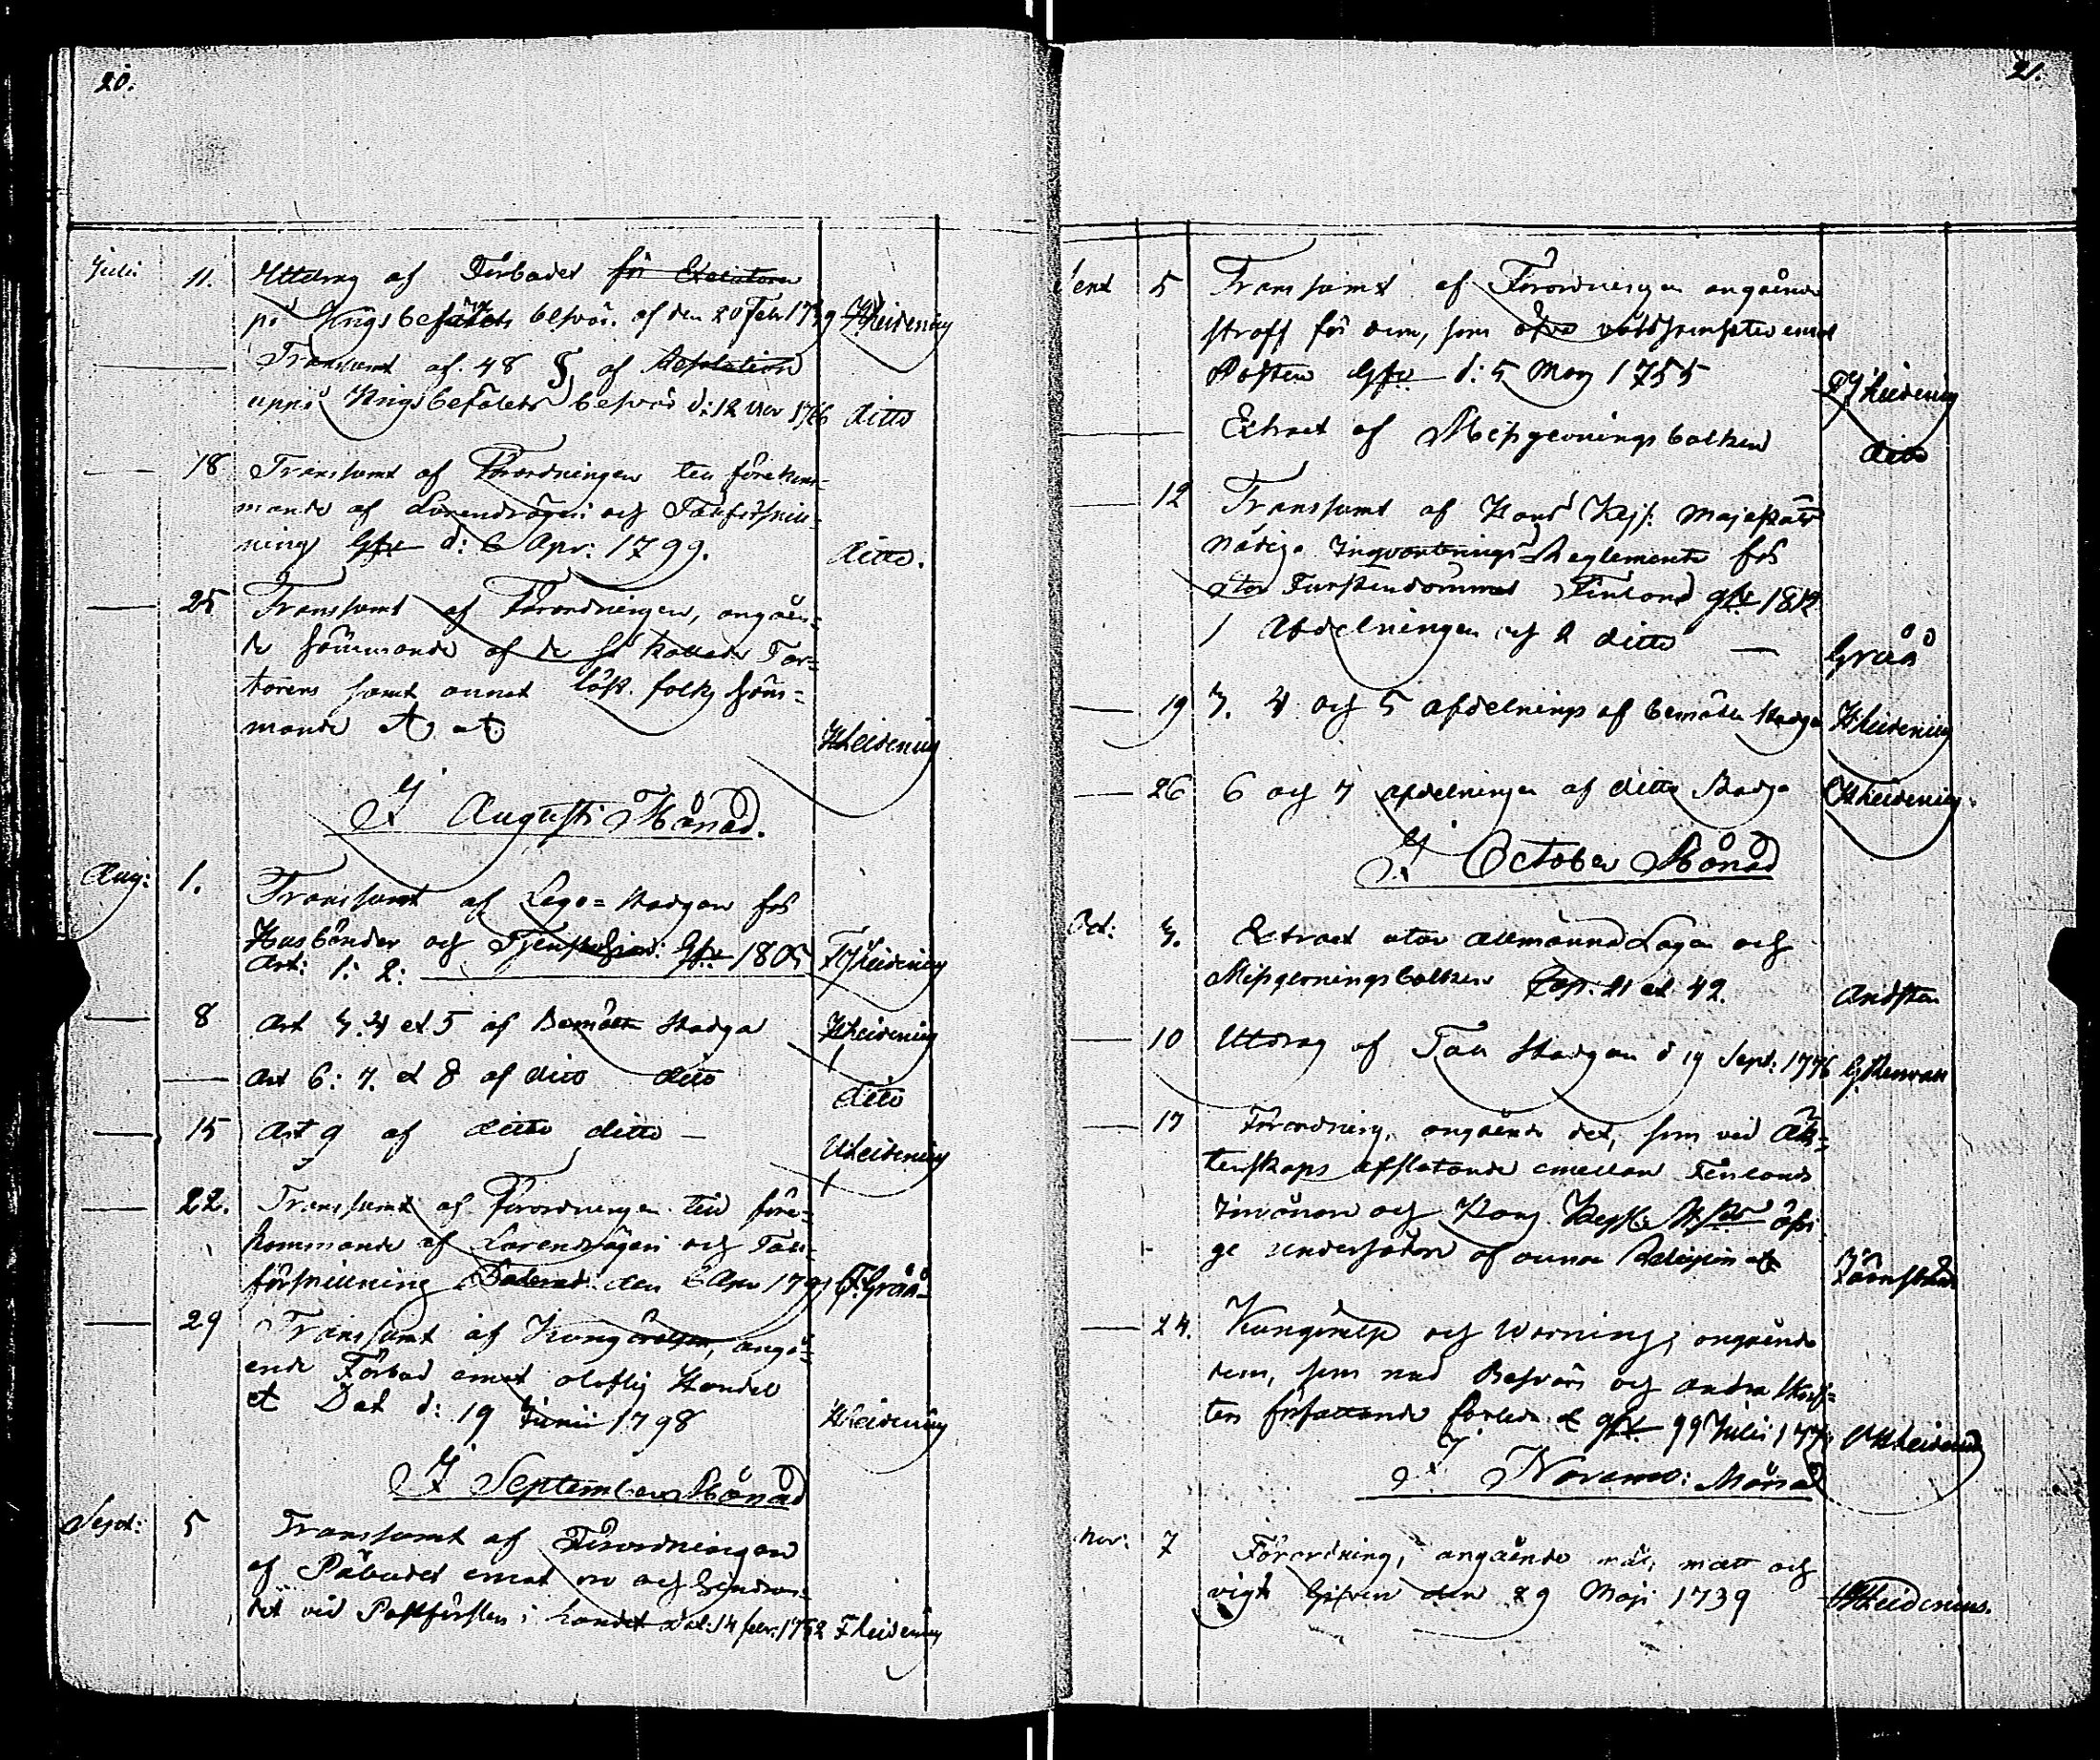 20.
Julii 11. Utdrag af Förbudet för Exsecutorn
på Krigsbefälets besvär. af den 20 Febr 1739 HHeidenius
Transumt af. 48 § af Resolution
uppå Krigsbefälets besvär d: 12 Nov 1766 ditto
18 Transumt af Förordningen till förekom-
mande af Lurendrägeri och Tullförsnill-
ning Gifn d: 6 Apr: 1799. ditto.
25 Transumt af Förordningen, angåen-
de hämmande af de så kallade Tar-
tarens samt annat löst folks häm-
mande
HHeidenius
I Augusti Månad.
Aug: 1. Transumt af Lego-Stadgan för
Husbönder och Tjenstehjon: Gifn 1805 FHeidenius
Art: 1: 2:
8 Art 3. 4 et 5 af Bemälte Stadga HHeidenius
Art 6: 7. et 8 af dito dito ditto
15 Art 9 af ditto ditto — HHeidenius
22. Transumt af Förordningen till före-
kommande af Lurendrägeri och Tull-
försnillning Daterad den 6 Apr 1799 Gråå
29 Transumt af Kungörelsen, angå-
ende Förbud emot oloflig Handel
et Dat d: 19 Junii 1798 HHeidenius
I September Månad
Sept: 5 Transumt af Förordningen
af Påbudet emot
det vid Postförslen i landet Dat: 14 febr: 1752 FHeidenius
21.
Sept 5 Transumt af Förordningen angående
straff för dem, som öfva våldsamheter emot
Posten Gifn d: 5 May 1755 FHeidenius
Extract af Missgerningsbalken ditto
12 Transumt af Hans Kejs: Majestäts
Nådiga Inqvarterings-Reglemente för
Stor Furstendömmet Finland gifn 1812
1 Abdelningen och 2 ditto — Gråå
19 3. 4 och 5 afdelnings af bemälte Stadga HHeidenius
26 6 och 7 afdelningen af ditto Stadga HHeidenius.
I October Månad
Oct: 3. Extract utur Allmänna Lagen och
Missgerningsbalken Cap. 21 et 42. Andsten
10 Utdrag af Tull Stadgan d 19 Sept: 1776
17 Förordning, angående det, som vid Äk-
tenskaps afslutande emellan Finlands
Innvånare och Hans Kejs Mst öfri
ge undersåtare af annan Religion
24. Kungörelse och Warning, angående
dem, som med Besvärs och andra Skrif-
ters författande gifn 99 Julii 177 HHeidenius
I Novemb: Månad
Nov: 7 Förordning, angående mål, mått och
vigt Gifven den 29 Maji 1739 HHeidenius.